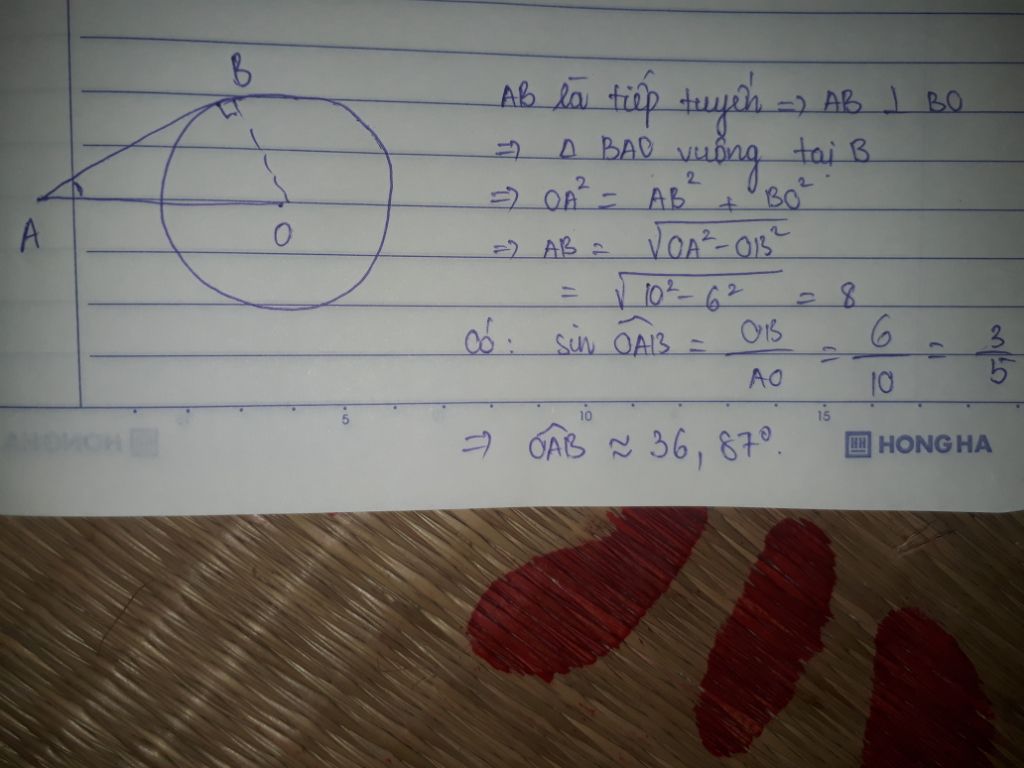 B
A
O
AB là tiếp tuyến => AB ⊥ BO
=> Δ BAO vuông tại B
=> OA² = AB² + BO²
=> AB = √OA² - OB²
= √10² - 6² = 8
Có: sin OAB = OB/AO = 6/10 = 3/5
5 10 15
=> OAB ≈ 36,87°.
HONG HA
HONG HA